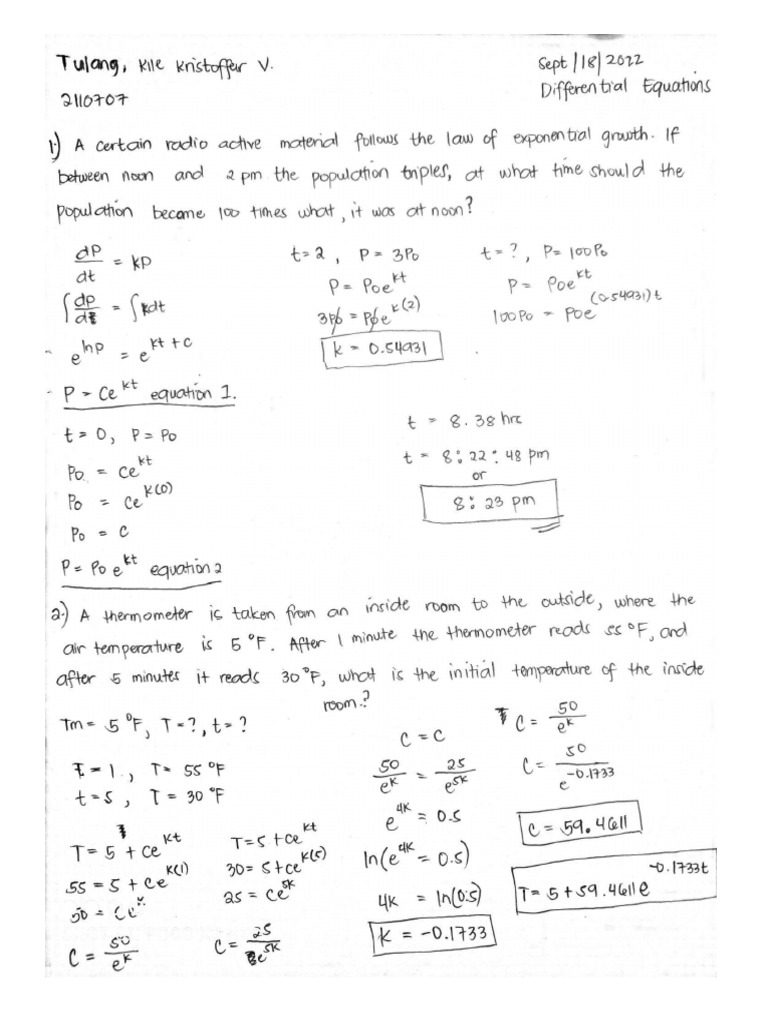 Tulang, Kile Kristoffer V.
Sept/18/2022
2110707
Differential Equations
1.) A certain radio active material follows the law of exponential growth. If
between noon and 2 pm the population triples, at what time should the
population become 100 times what, it was at noon?
dP/dt = kP
∫ dP/dt = ∫ kdt
e^lnP = e^kt + c
P = Ce^kt equation 1.
t = 0, P = Po
Po = Ce^kt
Po = Ce^k(0)
Po = C
P = Po e^kt equation 2
t = 2, P = 3Po
P = Poe^kt
3Po = Poe^k(2)
k = 0.54931
t = ?, P = 100Po
P = Poe^kt
100Po = Poe^(0.54931)t
t = 8.38 hrs
t = 8:22:48 pm
or
8:23 pm
2.) A thermometer is taken from an inside room to the outside, where the
air temperature is 5°F. After 1 minute the thermometer reads 55°F, and
after 5 minutes it reads 30°F, what is the initial temperature of the inside
room?
Tm = 5°F, T = ?, t = ?
t = 1, T = 55°F
t = 5, T = 30°F
T = 5 + Ce^kt
55 = 5 + Ce^k(1)
50 = Ce^k
C = 50/e^k
T = 5 + Ce^kt
30 = 5 + Ce^k(5)
25 = Ce^5k
C = 25/e^5k
C = C
50/e^k = 25/e^5k
e^4k = 0.5
ln(e^4k = 0.5)
4k = ln(0.5)
k = -0.1733
C = 50/e^k
C = 50/e^-0.1733
C = 59.4611
T = 5 + 59.4611e^-0.1733t